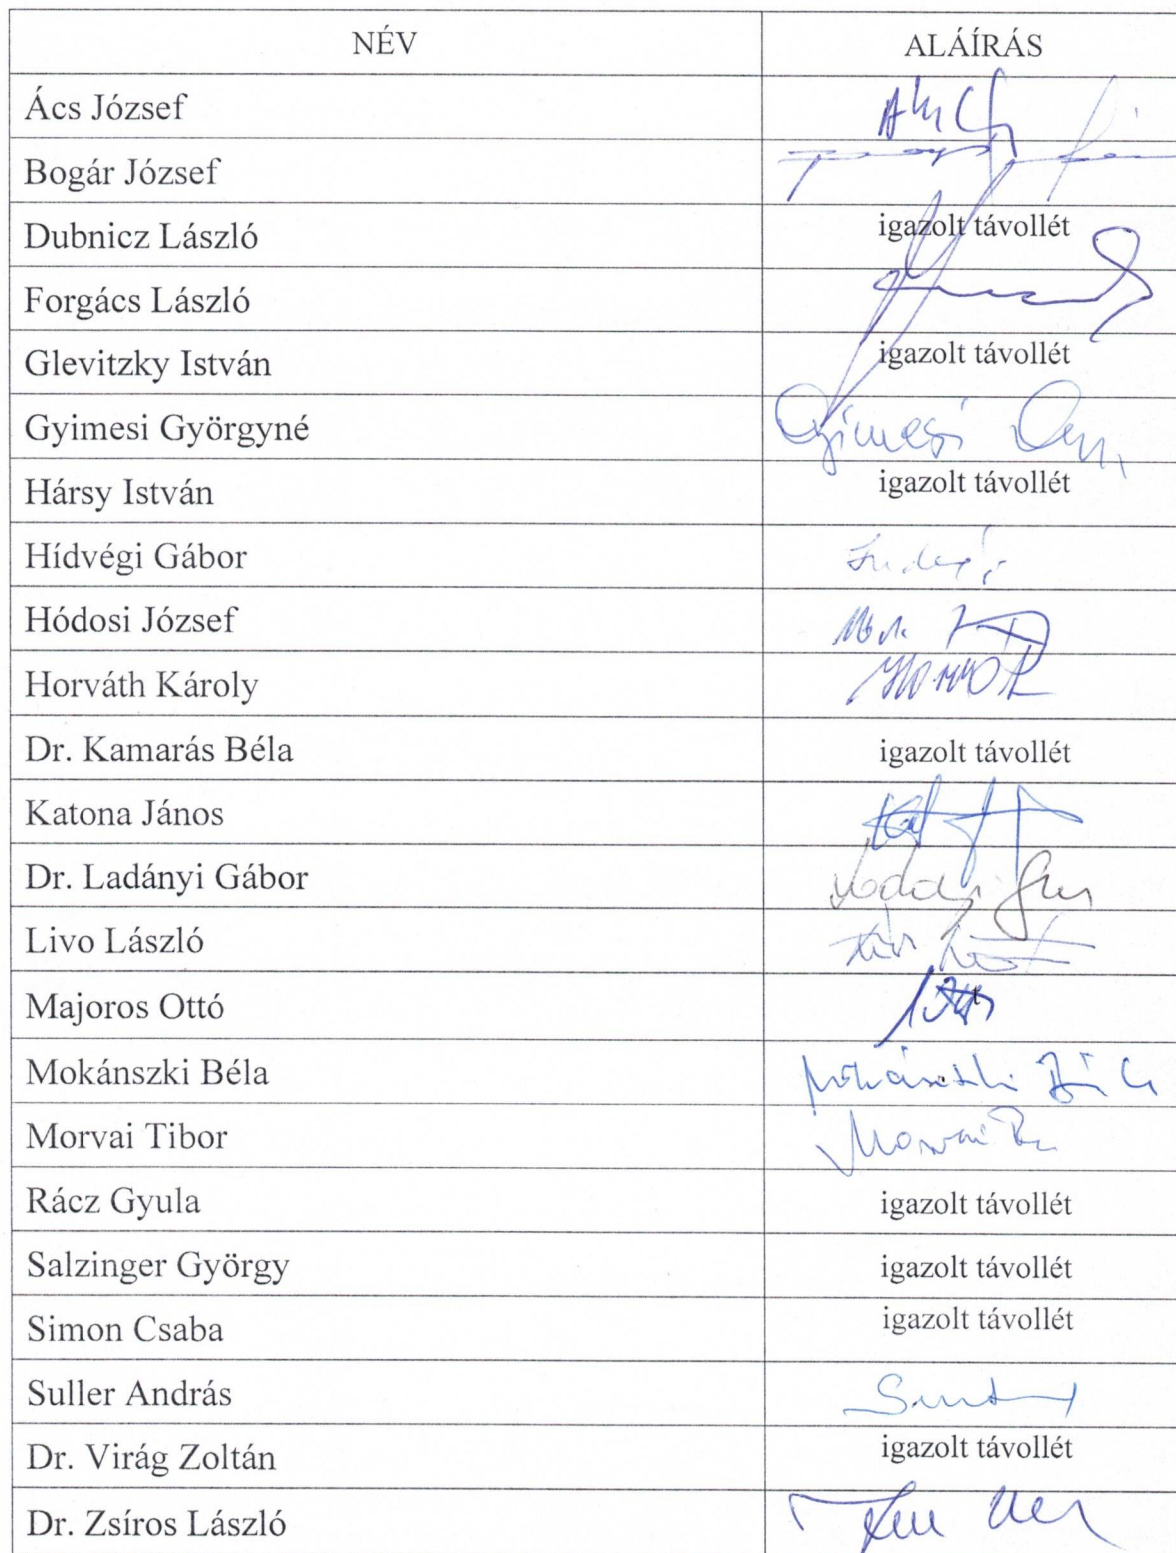 NÉV ALÁÍRÁS
Ács József
Bogár József
Dubnicz László igazolt távollét
Forgács László
Glevitzky István igazolt távollét
Gyimesi Györgyné Gyimesi
Hársy István igazolt távollét
Hídvégi Gábor
Hódosi József
Horváth Károly
Dr. Kamarás Béla igazolt távollét
Katona János
Dr. Ladányi Gábor
Livo László
Majoros Ottó
Mokánszki Béla
Morvai Tibor Morvai
Rácz Gyula igazolt távollét
Salzinger György igazolt távollét
Simon Csaba igazolt távollét
Suller András
Dr. Virág Zoltán igazolt távollét
Dr. Zsíros László